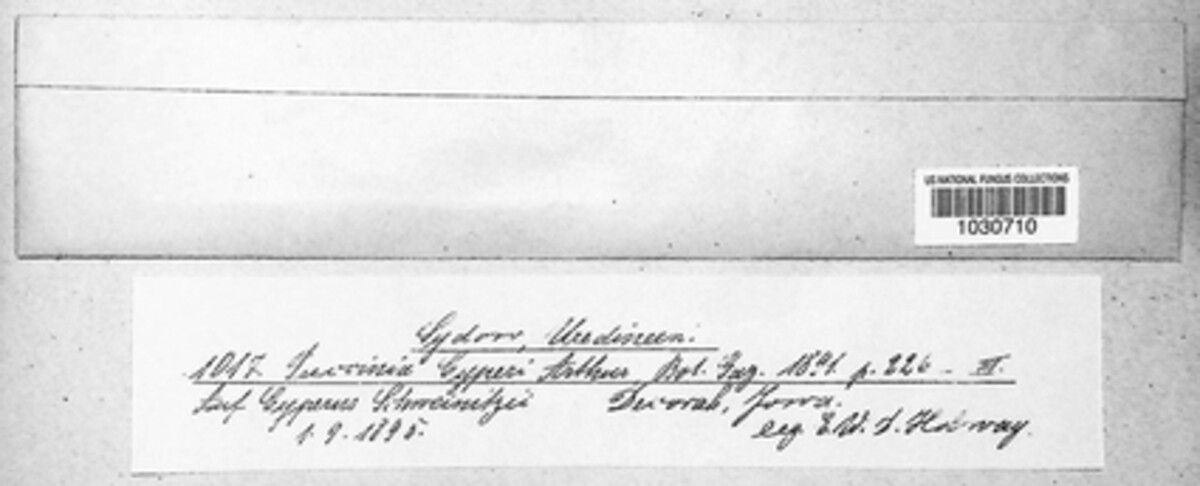 US NATIONAL FUNGUS COLLECTIONS
1030710
Sydow, Uredineen.
1017 Puccinia Cyperi Arthur Bot. Gaz. 1891. p. 226 - III.
Auf Cyperus Schweinitzii Decorah, Jowa.
1. 9. 1895. leg. E. W. D. Holway.